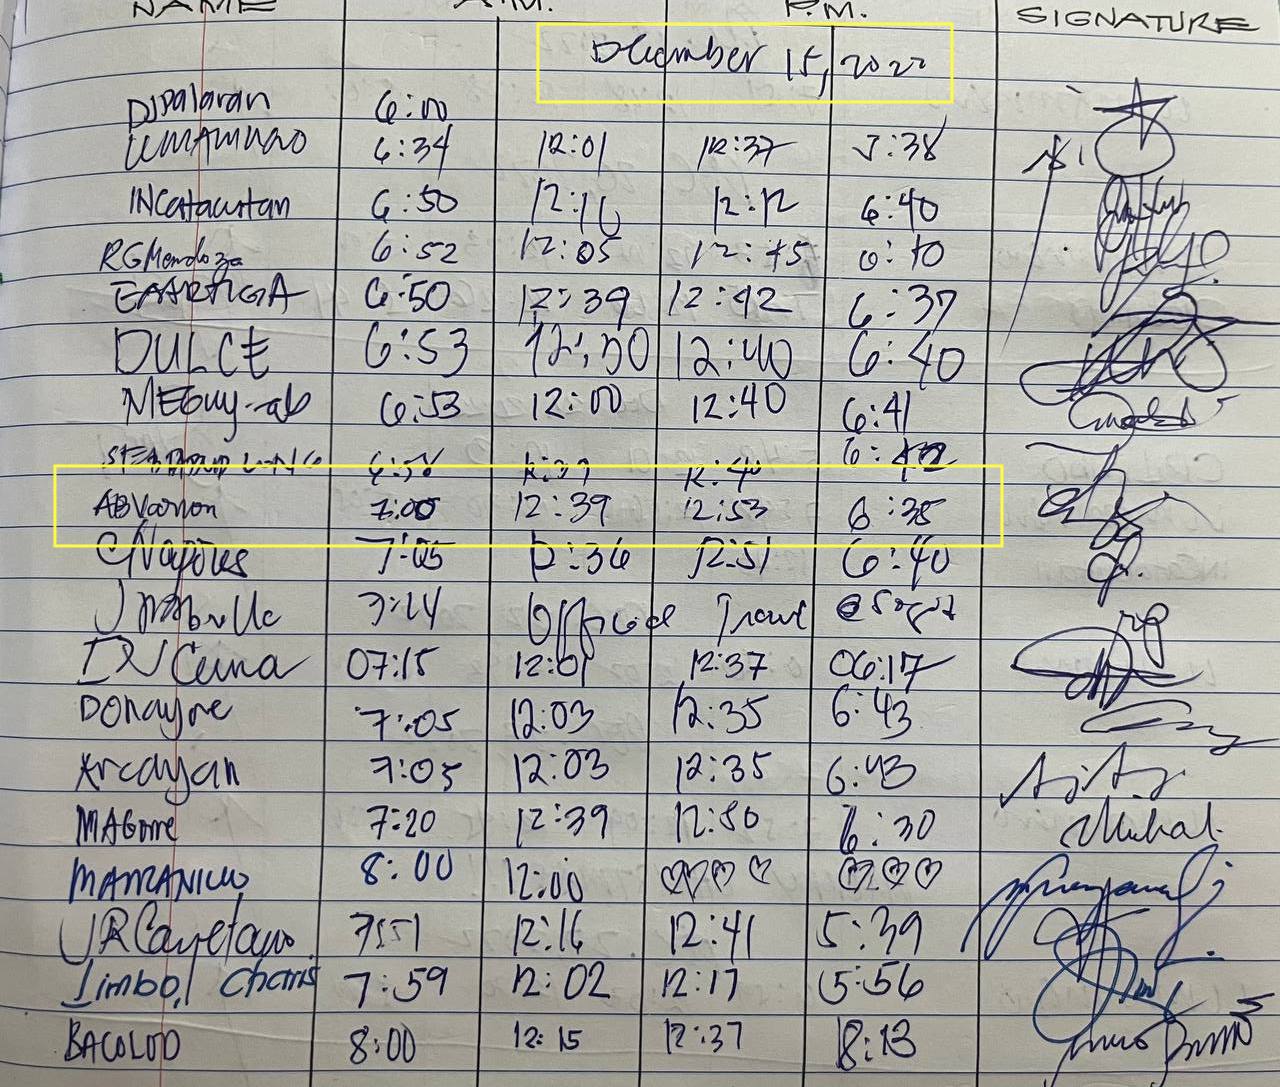 NAME A.M. P.M. SIGNATURE
December 15, 2022
DJPalaran 6:00
6:34 12:01 12:37 5:38
INCatacutan 6:50 12:10 12:12 6:40
RGMendoza 6:52 12:05 12:45 6:10
EAARTIGA 6:50 12:39 12:42 6:37
DULCE 6:53 12:30 12:40 6:40
MEGuy-ab 6:53 12:00 12:40 6:41
6:58
ABVarron 7:00 12:39 12:53 6:35
CNapoles 7:05 12:36 12:51 6:40
7:14 Official Travel
07:15 12:01 12:37 06:17
DOnayre 7:05 12:03 12:35 6:43
Arcayan 7:05 12:03 12:35 6:43
MAGome 7:20 12:39 12:50 6:30
8:00 12:00 ♡♡♡ ♡♡♡
JRCayetano 7:51 12:16 12:41 5:39
Limbo, Charris 7:59 12:02 12:17 5:56
BACOLOD 8:00 12:15 12:37 18:13